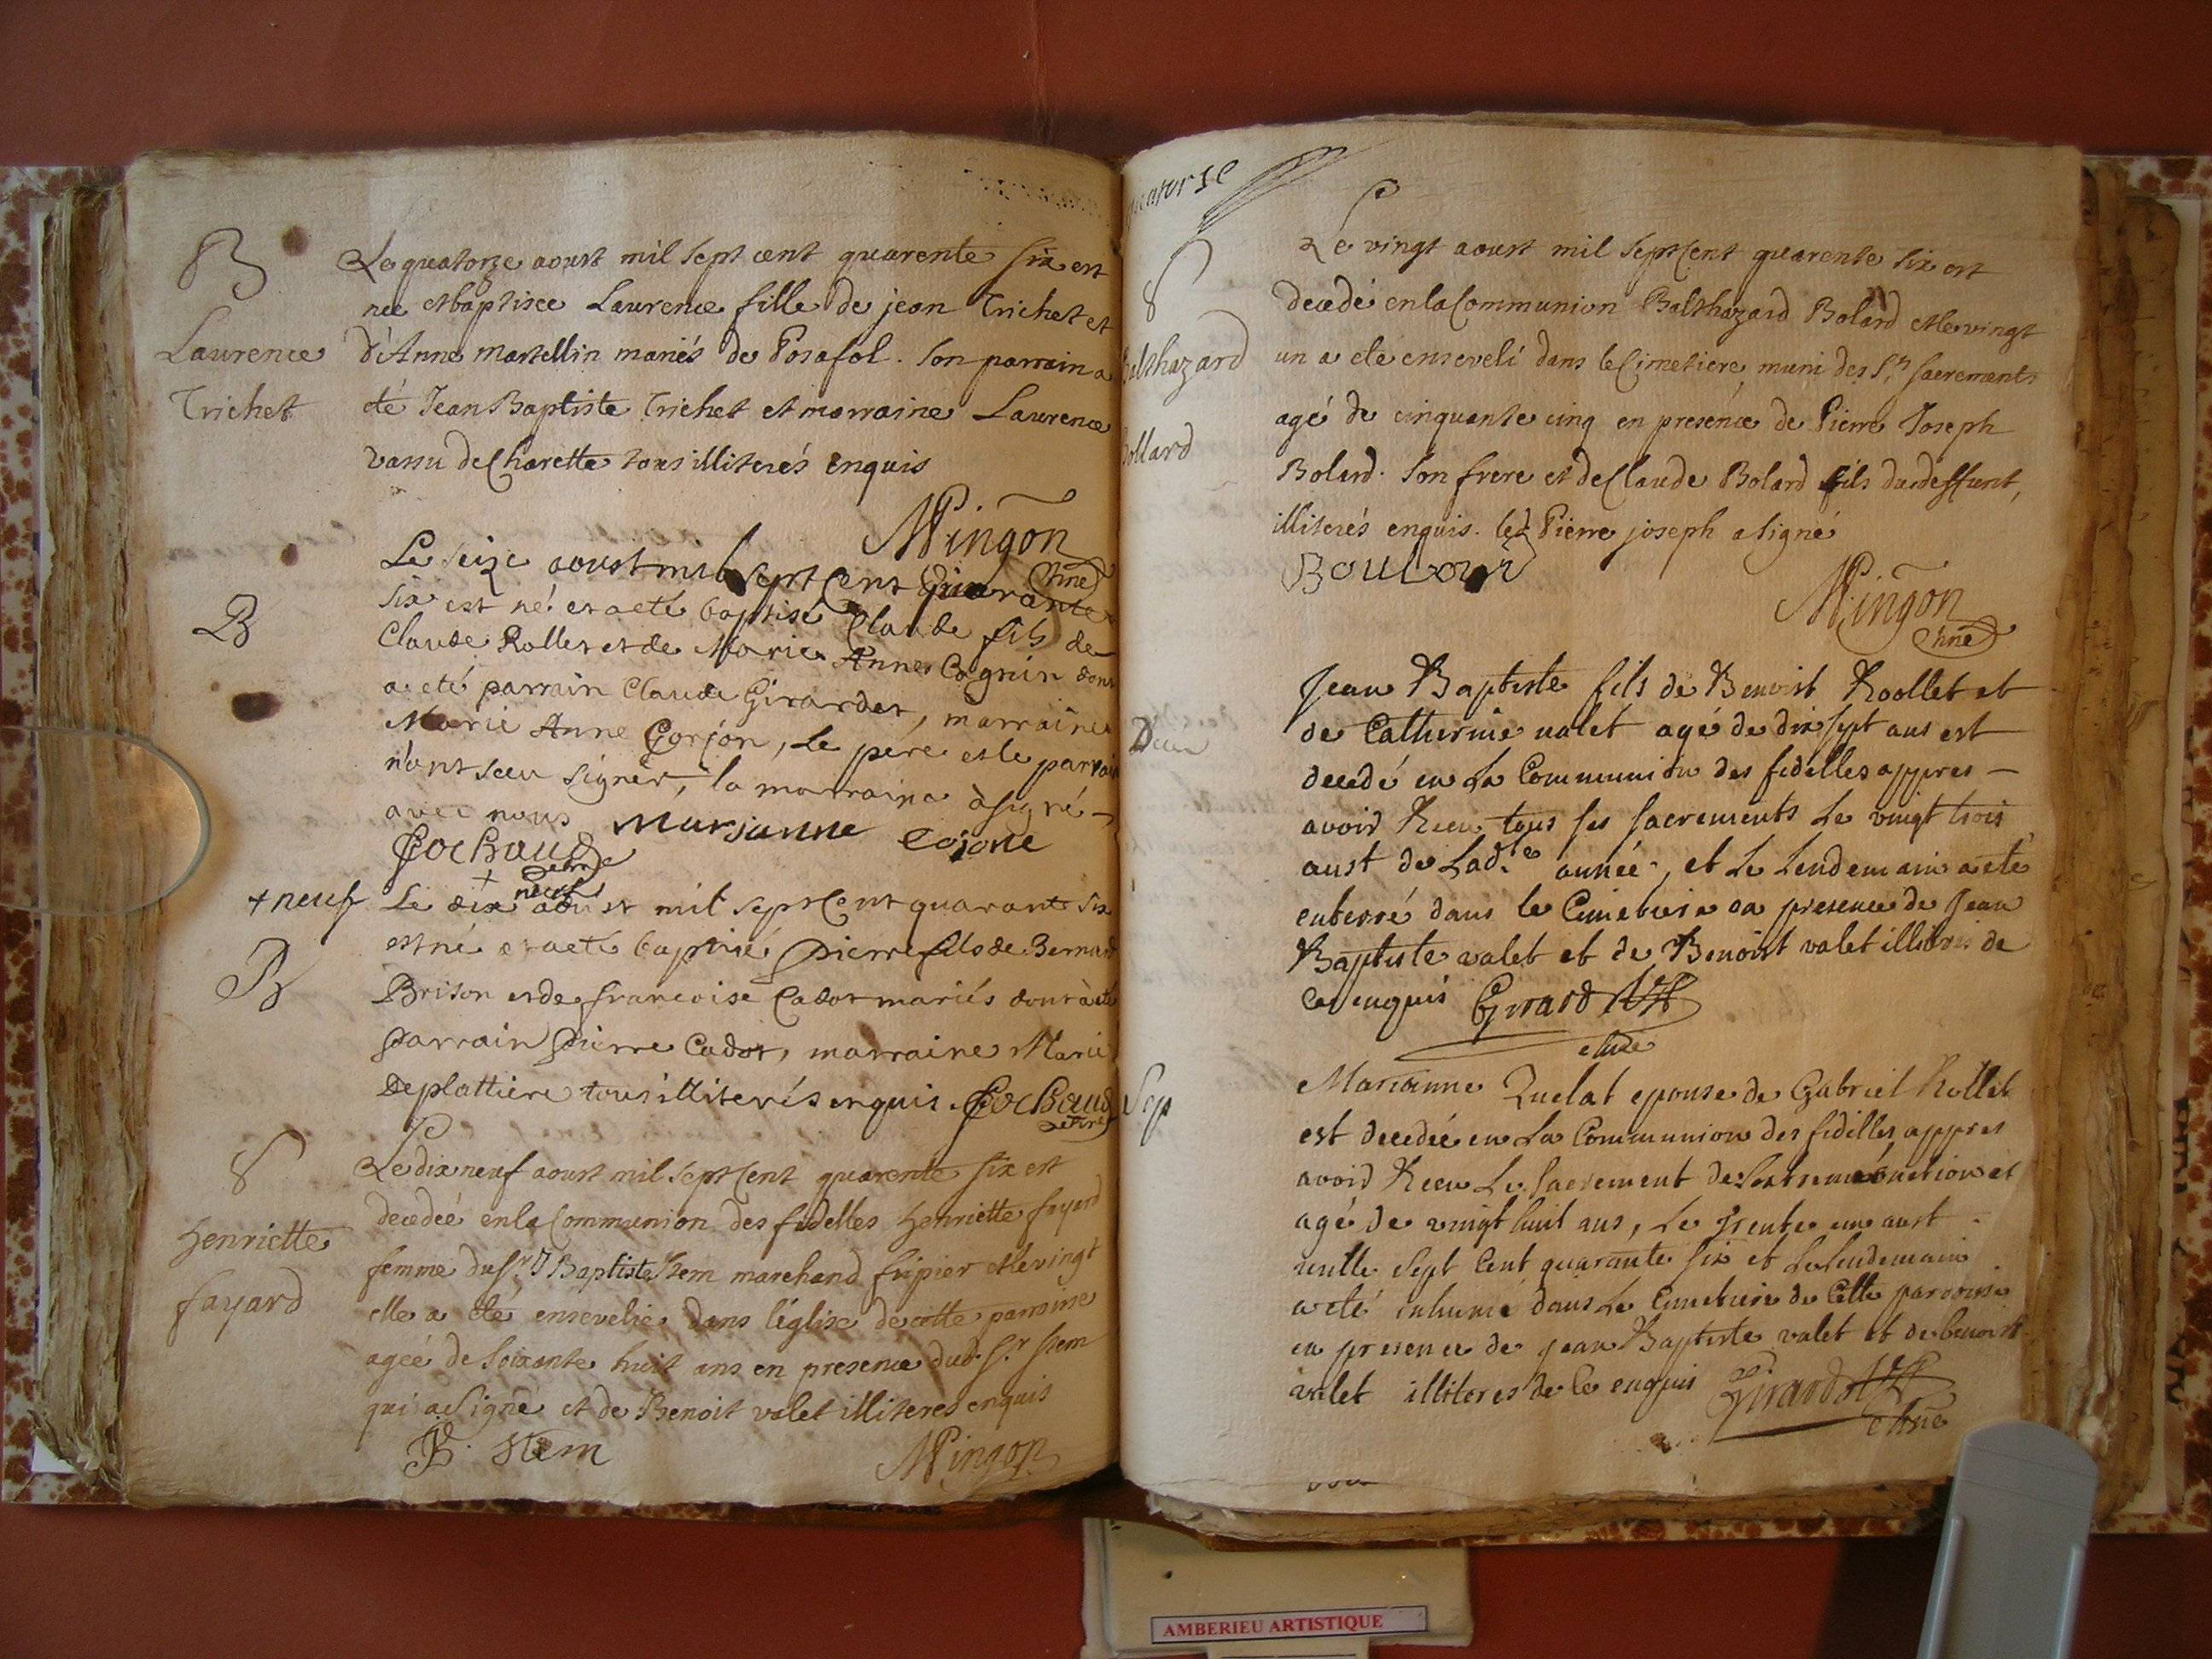 B
Laurence
Trichet
Le quatorze aoust mil sept cent quarente six est
née et baptisée Laurence fille de jean Trichet et
d'Anne martellin mariés de Posafol. Son parrain a
eté Jean Baptiste Trichet et marraine Laurence
vassu de Charette tous illiterés enquis
Mingon
B
Le seize aoust mil sept Cent Quarante
six est né et a eté baptisé Claude fils de
Claude Rollet et de Marie Anne Cognin dont
a eté parrain Claude Girardet, marraine
Marie Anne Gorjon, Le pere et le parrain
n'ont sceu signer, la marraine à signé
avec nous marjanne cojone
Cochaud
+ neuf
B
Le dix neuf aoust mil sept Cent quarante six
est né et a eté baptisé Pierre fils de Bernard
Brison et de francoise Cadot mariés dont à eté
Parrain Pierre Cadot, marraine Marie
Deplattiere tous illiterés enquis. Cochaud
S
henriette
fayard
Le dix neuf aoust mil sept Cent quarente six est
decedée en la Communion des fidelles henriette fayard
femme du Sr J Baptiste Stem marchand fripier et le vingt
elle a été ensevelie dans l'église de cette parroisse
agée de soixante huit ans en presence dud. Sr Stem
qui a signé et de Benoit valet illiteres enquis
JB. stem Mingon
quatorse
S
Balthazard
Bollard
Le vingt aoust mil sept Cent quarente six est
decedé en la Communion Balthazard Bolard et le vingt
un a eté enseveli dans le Cimetiere muni des Sts sacrements
agé de cinquante cinq en presence de Pierre Joseph
Bolard. Son frere et de Claude Bolard fils dud deffunt,
illiterés enquis. led Pierre joseph a signé
Mingon
Jean Baptiste fils de Benoist Roollet et
de Catherine valet agé de dix sept ans est
decedé en La Communion des fidelles appres
avoir Receu tous ses sacrements Le vingt trois
aust de Lad.te année, et Le Lendemain a eté
enterré dans le Cimetiere en presence de Jean
Baptiste valet et de Benoist valet illiteres de
ce enquis Girard
Sep
Marianne Quelat epouse de Gabriel Rollet
est decedée en La Communion des fidelles appres
avoir Receu Le sacrement de Lextreme onction et
agé de vingt huit ans, Le trente un aust
mille Sept Cent quarante six et Le Lendemain
a eté inhumé dans Le Cimetiere de Cette parroisse
en presence de jean Baptiste valet et de benoist
valet illiteres de ce enquis Girard
AMBERIEU ARTISTIQUE